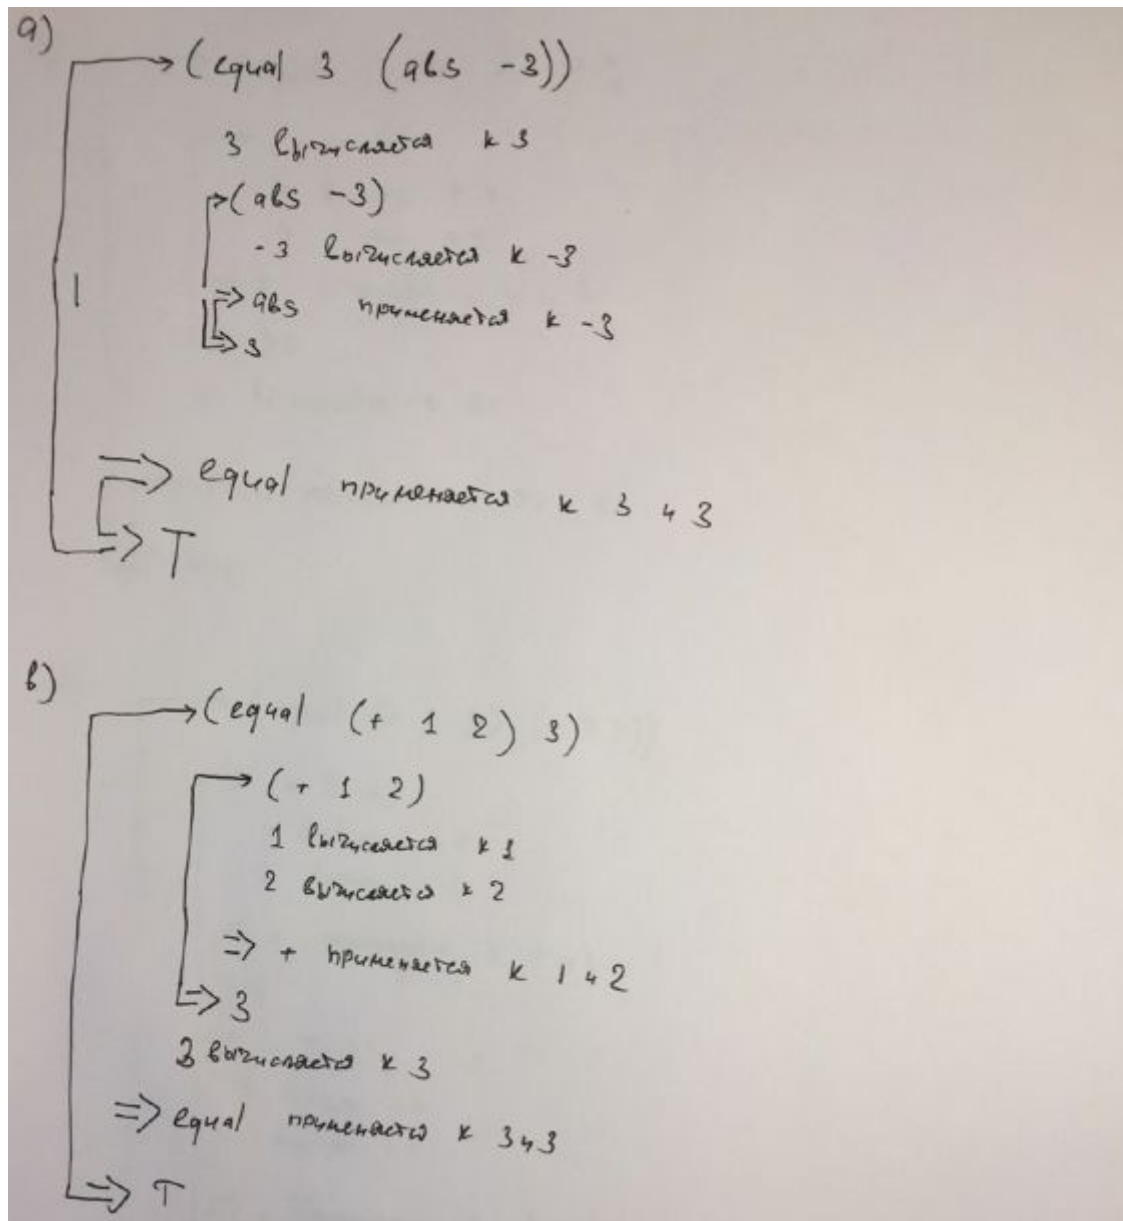 а)
(equal 3 (abs -3))
3 вычисляется к 3
(abs -3)
-3 вычисляется к -3
=> abs применяется к -3
=> 3
=> equal применяется к 3 и 3
=> T
в)
(equal (+ 1 2) 3)
(+ 1 2)
1 вычисляется к 1
2 вычисляется к 2
=> + применяется к 1 и 2
=> 3
3 вычисляется к 3
=> equal применяется к 3 и 3
=> T